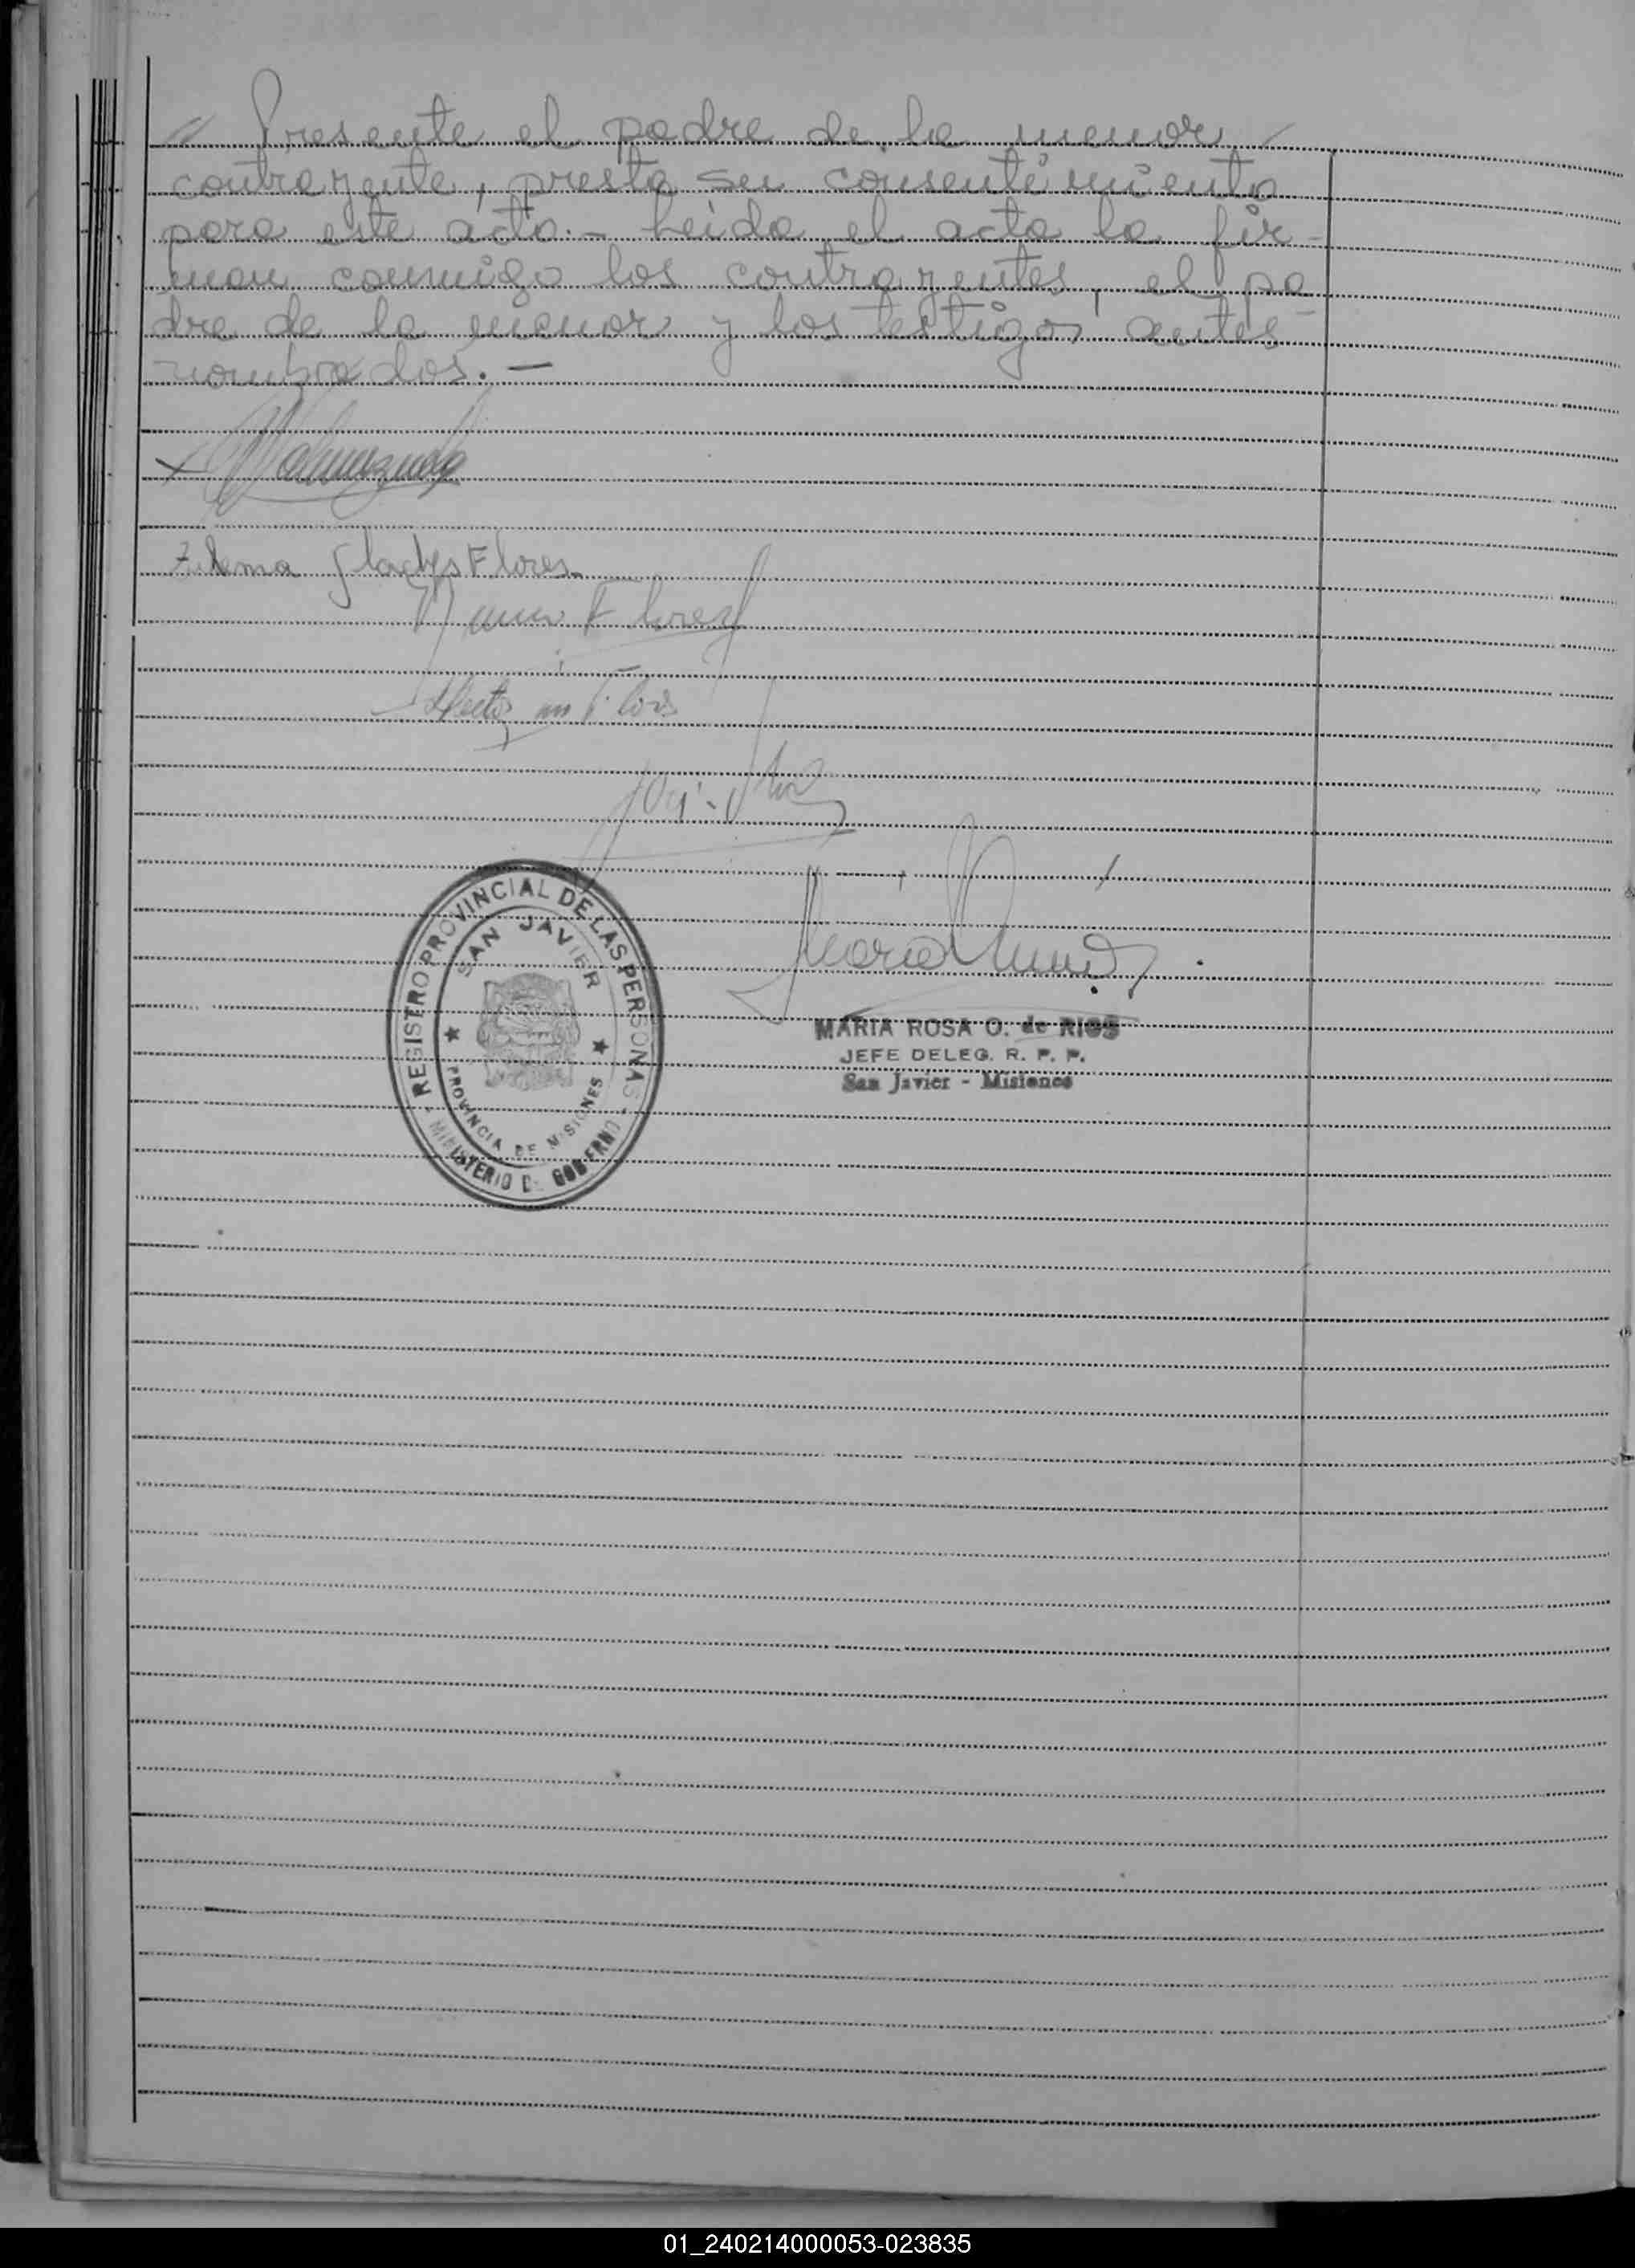 " Presente el padre de la menor /
contrayente, presta su consentimiento
para este acto.- Leida el acta la fir-
man conmigo los contrayentes, el pa-
dre de la menor y los testigos antes
nombrados. —
x
Zulema Gladys Flores
Flores
REGISTRO PROVINCIAL DE LAS PERSONAS
SAN JAVIER
PROVINCIA DE MISIONES
- MINISTERIO DE GOBIERNO -
MARIA ROSA O. de RIOS
JEFE DELEG. R. P. P.
San Javier - Misiones
01_240214000053-023835